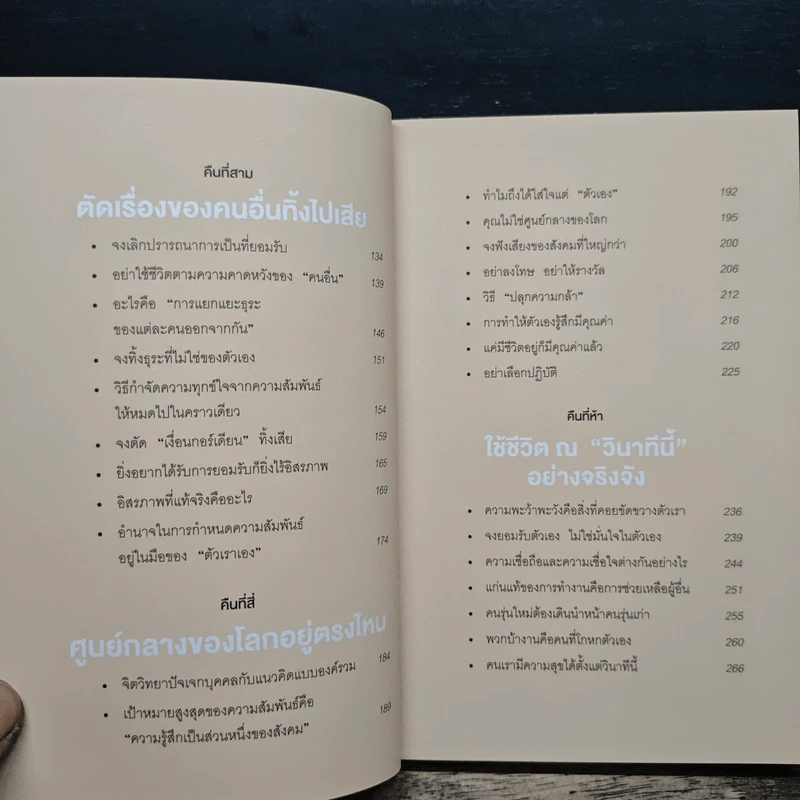 คืนที่สาม
ตัดเรื่องของคนอื่นทิ้งไปเสีย
• จงเลิกปรารถนาการเป็นที่ยอมรับ 134
• อย่าใช้ชีวิตตามความคาดหวังของ “คนอื่น” 139
• อะไรคือ “การแยกแยะธุระ
ของแต่ละคนออกจากกัน” 146
• จงทิ้งธุระที่ไม่ใช่ของตัวเอง 151
• วิธีกำจัดความทุกข์ใจจากความสัมพันธ์
ให้หมดไปในคราวเดียว 154
• จงตัด “เงื่อนกอร์เดียน” ทิ้งเสีย 159
• ยิ่งอยากได้รับการยอมรับก็ยิ่งไร้อิสรภาพ 165
• อิสรภาพที่แท้จริงคืออะไร 169
• อำนาจในการกำหนดความสัมพันธ์
อยู่ในมือของ “ตัวเราเอง” 174
คืนที่สี่
ศูนย์กลางของโลกอยู่ตรงไหน
• จิตวิทยาปัจเจกบุคคลกับแนวคิดแบบองค์รวม 184
• เป้าหมายสูงสุดของความสัมพันธ์คือ 189
“ความรู้สึกเป็นส่วนหนึ่งของสังคม”
• ทำไมถึงได้ใส่ใจแต่ “ตัวเอง” 192
• คุณไม่ใช่ศูนย์กลางของโลก 195
• จงฟังเสียงของสังคมที่ใหญ่กว่า 200
• อย่าลงโทษ อย่าให้รางวัล 206
• วิธี “ปลุกความกล้า” 212
• การทำให้ตัวเองรู้สึกมีคุณค่า 216
• แค่มีชีวิตอยู่ก็มีคุณค่าแล้ว 220
• อย่าเลือกปฏิบัติ 225
คืนที่ห้า
ใช้ชีวิต ณ “วินาทีนี้”
อย่างจริงจัง
• ความพะว้าพะวังคือสิ่งที่คอยขัดขวางตัวเรา 236
• จงยอมรับตัวเอง ไม่ใช่มั่นใจในตัวเอง 239
• ความเชื่อถือและความเชื่อใจต่างกันอย่างไร 244
• แก่นแท้ของการทำงานคือการช่วยเหลือผู้อื่น 251
• คนรุ่นใหม่ต้องเดินนำหน้าคนรุ่นเก่า 255
• พวกบ้างานคือคนที่โกหกตัวเอง 260
• คนเรามีความสุขได้ตั้งแต่วินาทีนี้ 266